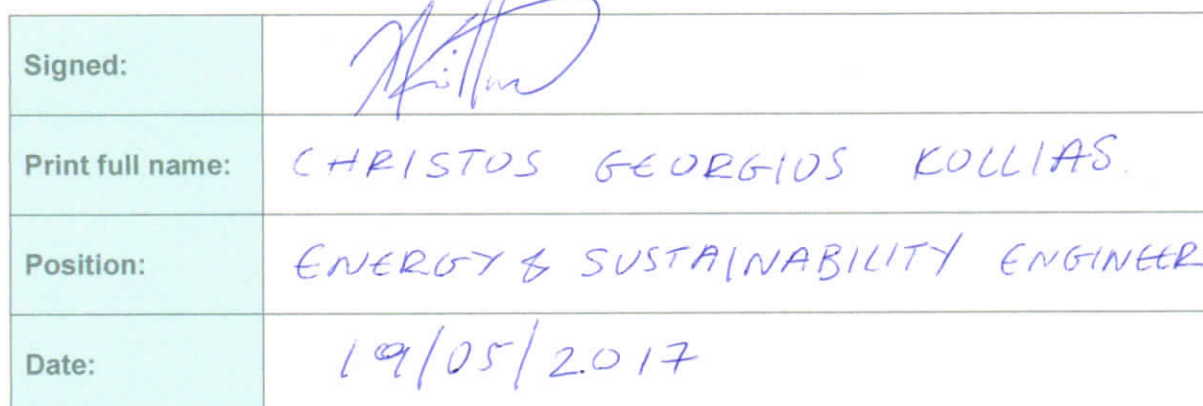 Signed:
Print full name: CHRISTOS GEORGIOS KOLLIAS.
Position: ENERGY & SUSTAINABILITY ENGINEER
Date: 19/05/2017